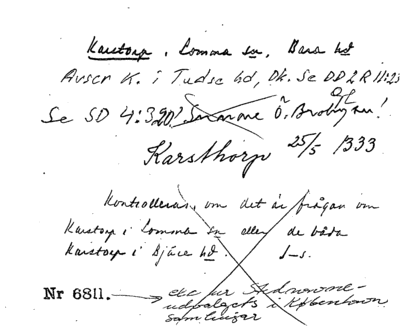 Karstorp, Lomma sn, Bara hd
Avscr K. i Tudse hd, Dk. Se DD 2 R 11:23
Se SD 4:320! Ö, Broby sn!
Karsthorp 25/5 1333
Kontrolleras, om det är frågan om
Karstorp i Lomma sn eller de båda
Karstorp i Bjäre hd. J-s.
Nr 6811. etc ur Stednavne-
udvalgets i København
samlingar